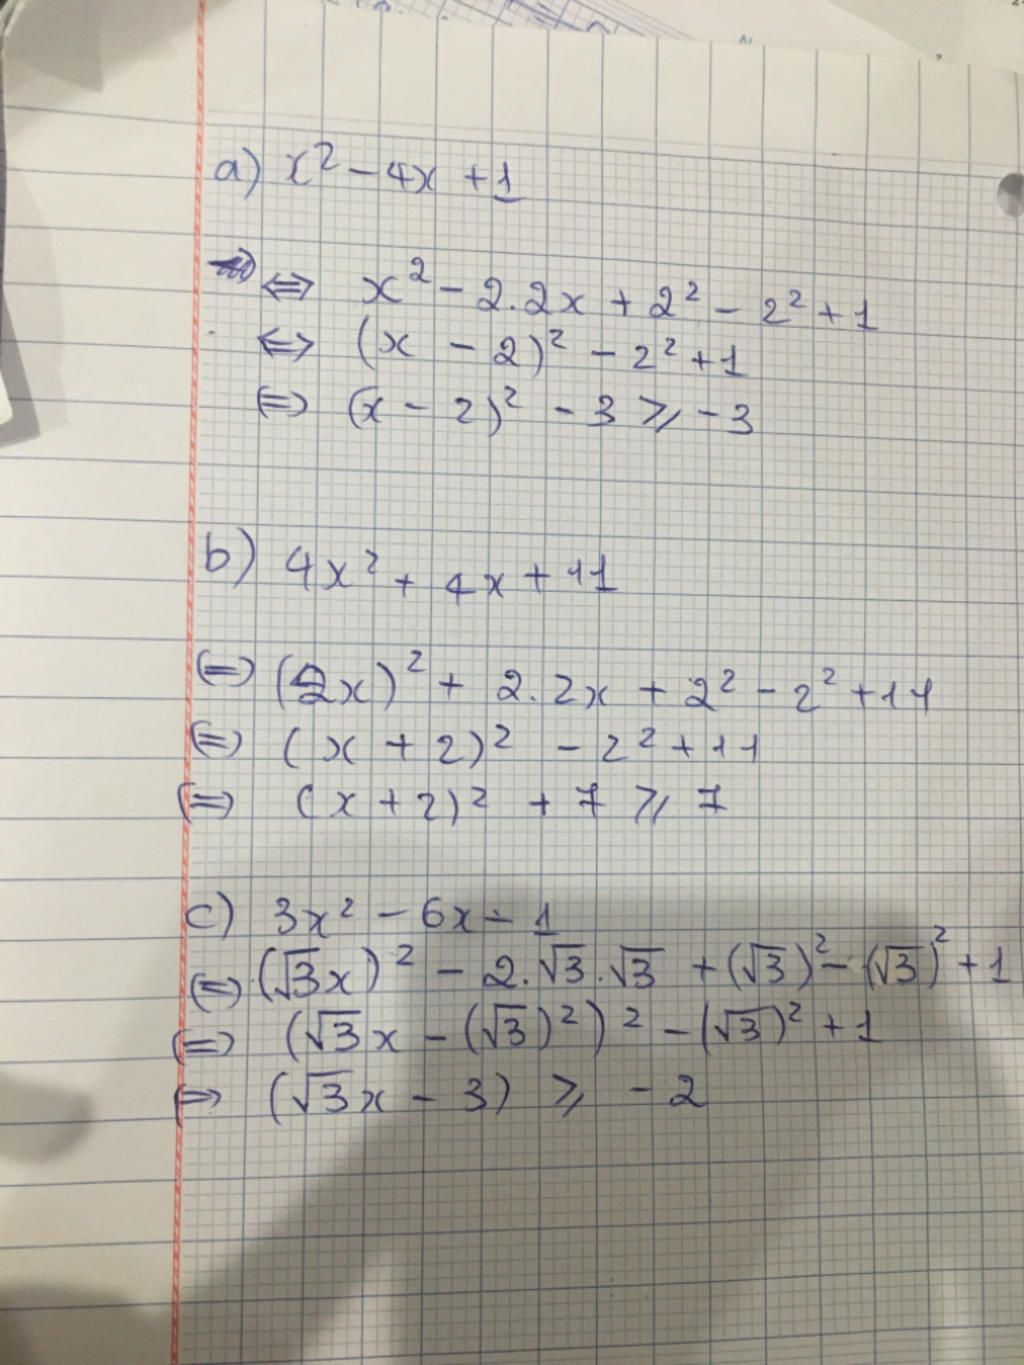 a) x² - 4x + 1
⇔ x² - 2.2x + 2² - 2² + 1
⇔ (x - 2)² - 2² + 1
⇔ (x - 2)² - 3 ⩾ -3
b) 4x² + 4x + 11
⇔ (2x)² + 2.2x + 2² - 2² + 11
⇔ (x + 2)² - 2² + 11
⇔ (x + 2)² + 7 ⩾ 7
c) 3x² - 6x - 1
⇔ (√3x)² - 2.√3.√3 + (√3)² - (√3)² + 1
⇔ (√3x - (√3)²)² - (√3)² + 1
⇔ (√3x - 3) ⩾ -2